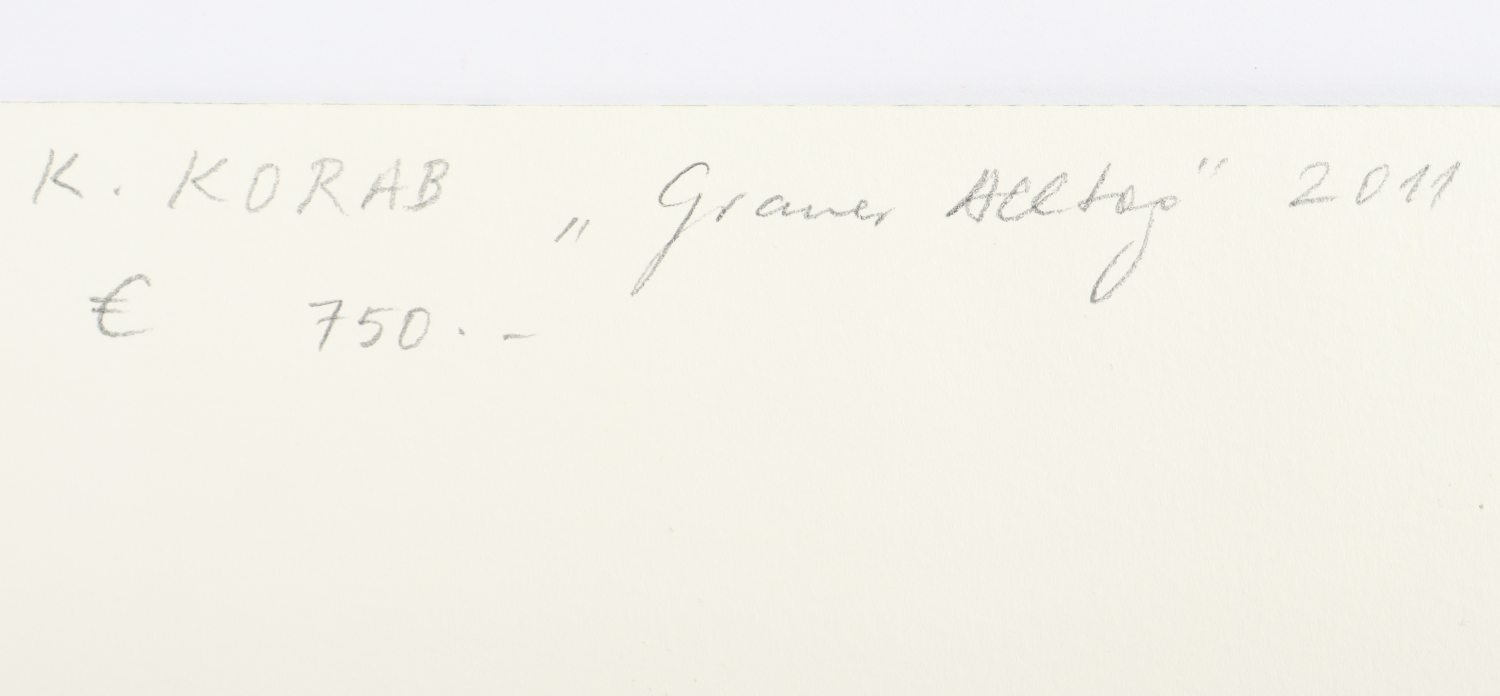 K. KORAB „Grauer Alltag" 2011
€ 750.-